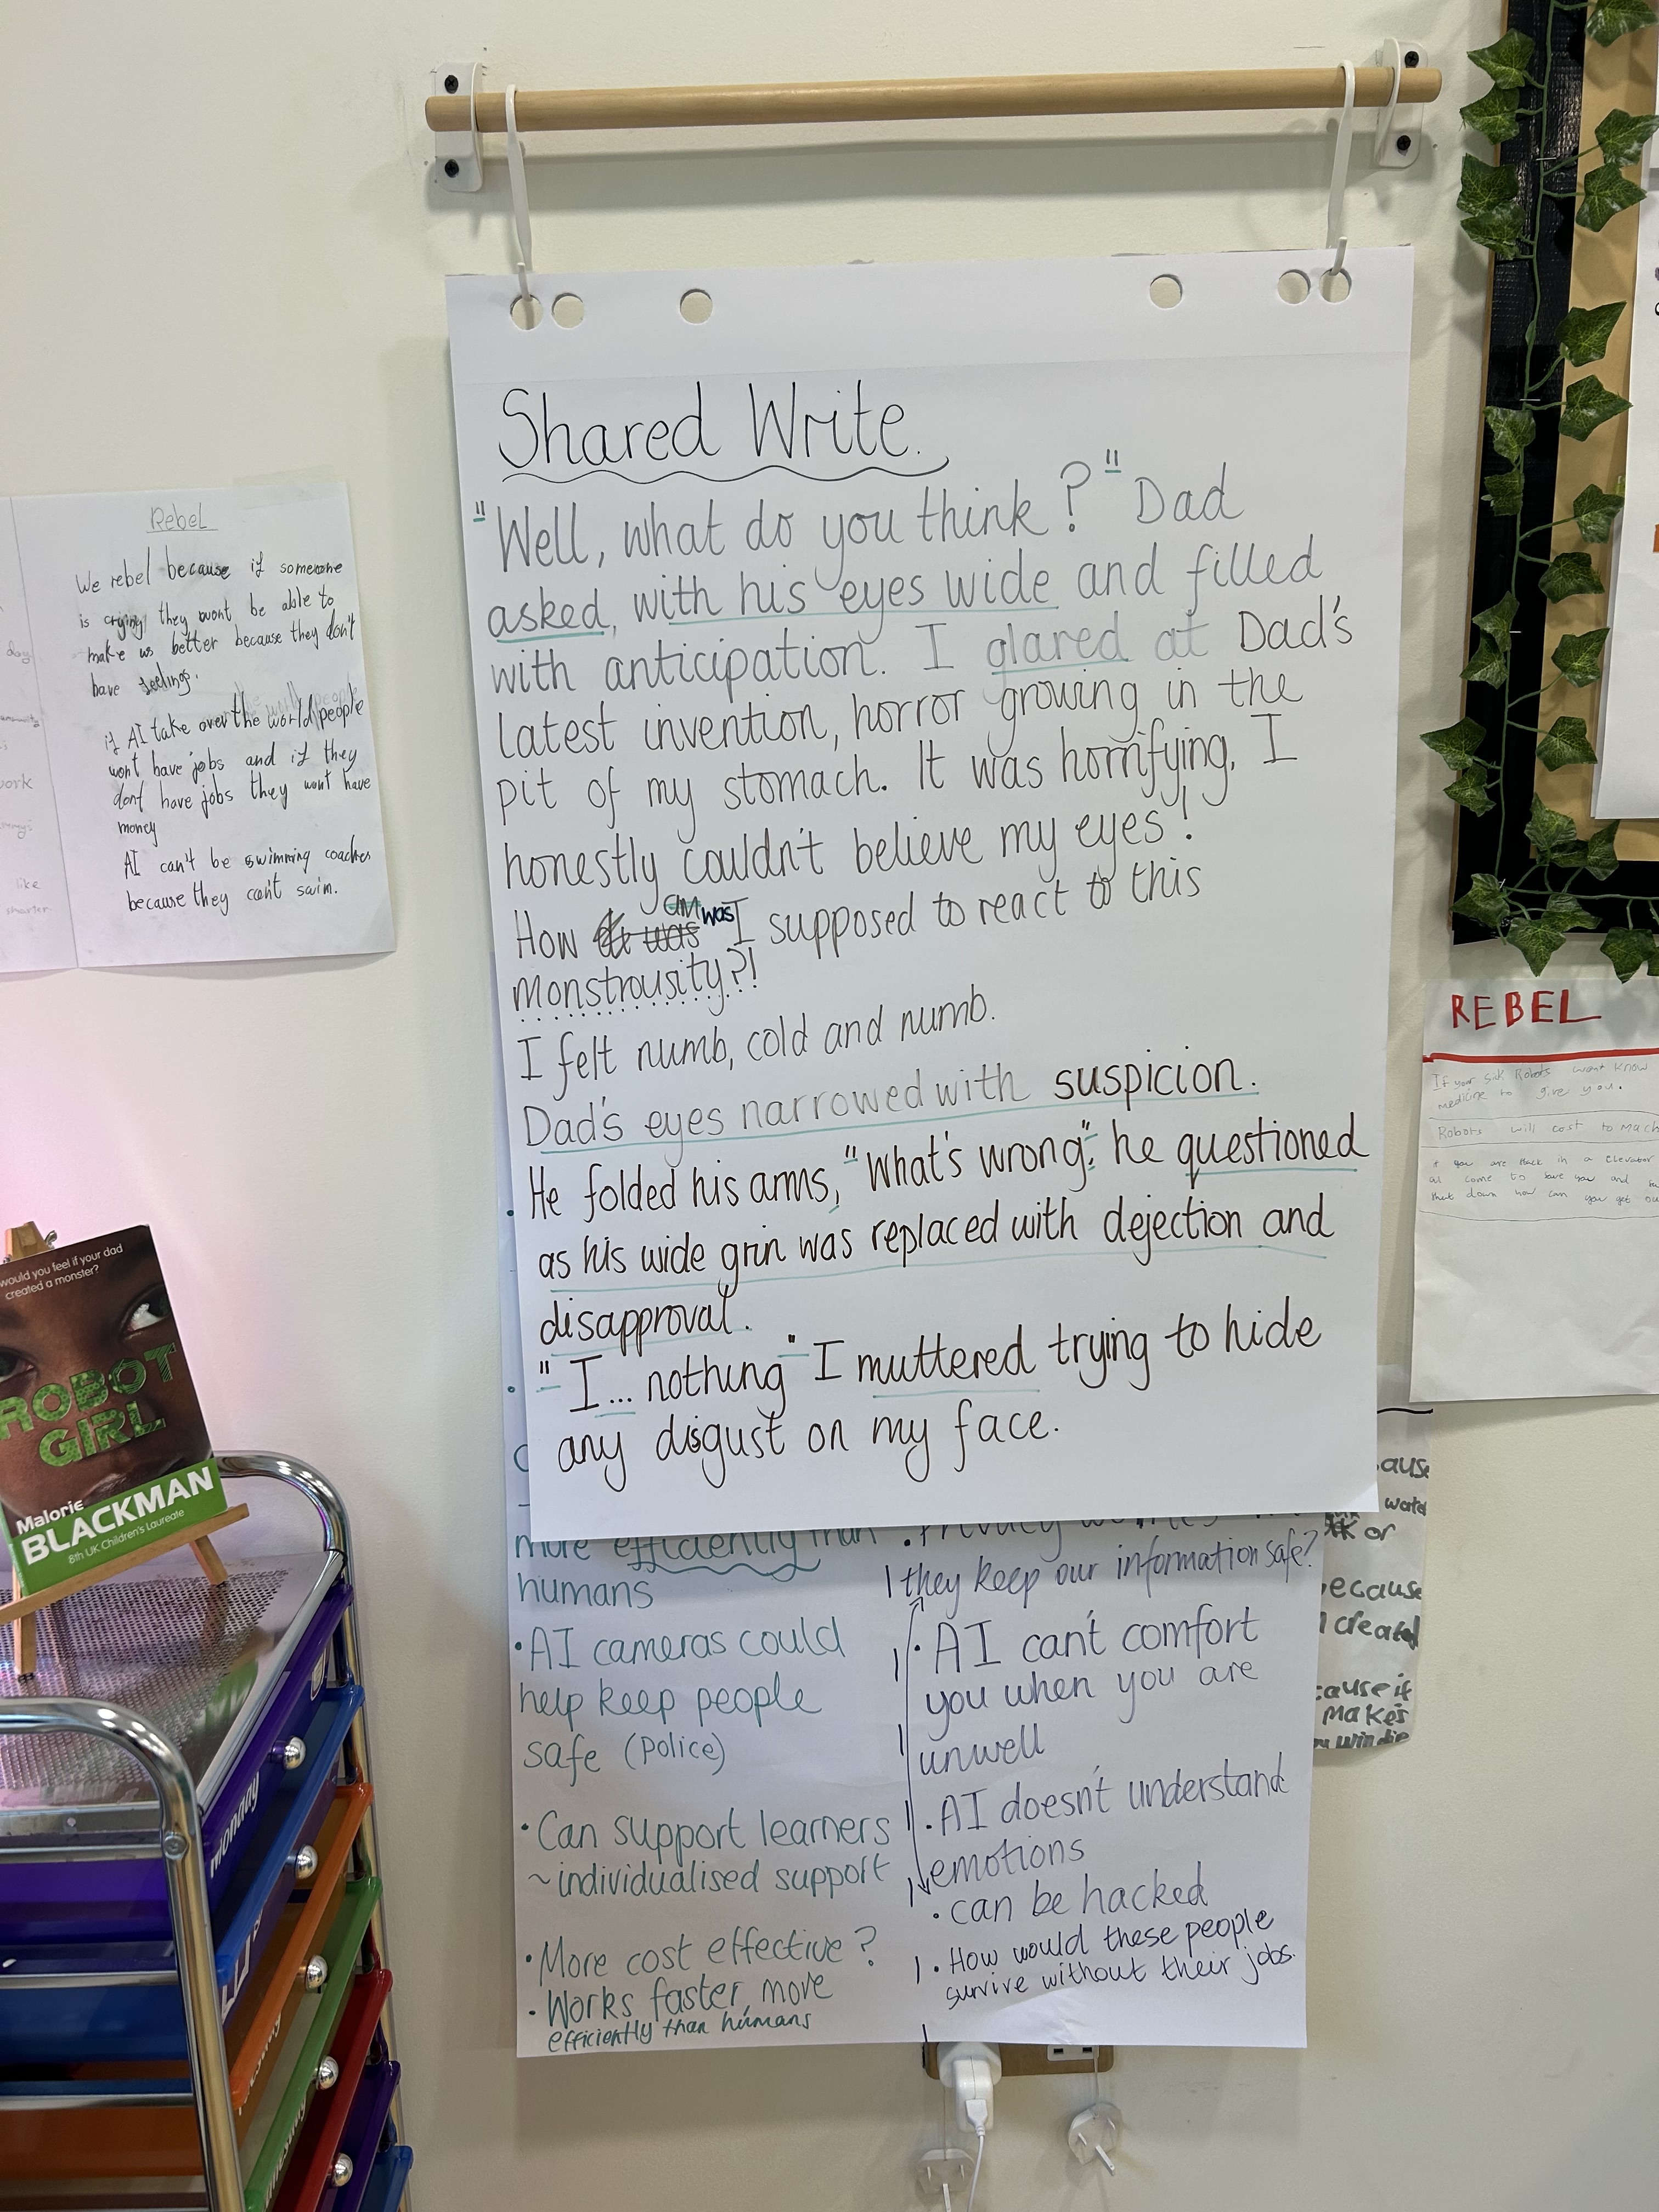 Shared Write.
"Well, what do you think?" Dad
asked, with his eyes wide and filled
with anticipation. I glared at Dad's
latest invention, horror growing in the
pit of my stomach. It was horrifying, I
honestly couldn't believe my eyes!
How was am was I supposed to react to this
monstrousity?!
I felt numb, cold and numb.
Dad's eyes narrowed with suspicion.
He folded his arms, "What's wrong", he questioned
as his wide grin was replaced with dejection and
disapproval.
"I... nothing" I muttered trying to hide
any disgust on my face.
more efficiently than
humans
• AI cameras could
help keep people
safe (Police)
• Can support learners
~individualised support
• More cost effective?
• Works faster, more
efficiently than humans
• Privacy
they keep our information safe?
• AI can't comfort
you when you are
unwell
• AI doesn't understand
emotions
• can be hacked
• How would these people
survive without their jobs.
Rebel
We rebel because if someone
is crying they wont be able to
make us better because they don't
have feelings.
if AI take over the world people
wont have jobs and if they
dont have jobs they wont have
money
AI can't be swimming coaches
because they cant swim.
day
work
like
smarter.
REBEL
If your sick Robots wont know
medicine to give you.
Robots will cost to much
if you are stuck in a elevator
come to save you and
shut down how can you get
ause
wate
or
ecause
created
cause if
makes
would you feel if your dad
created a monster?
ROBOT
GIRL
Malorie
BLACKMAN
8th UK Children's Laureate
Monday